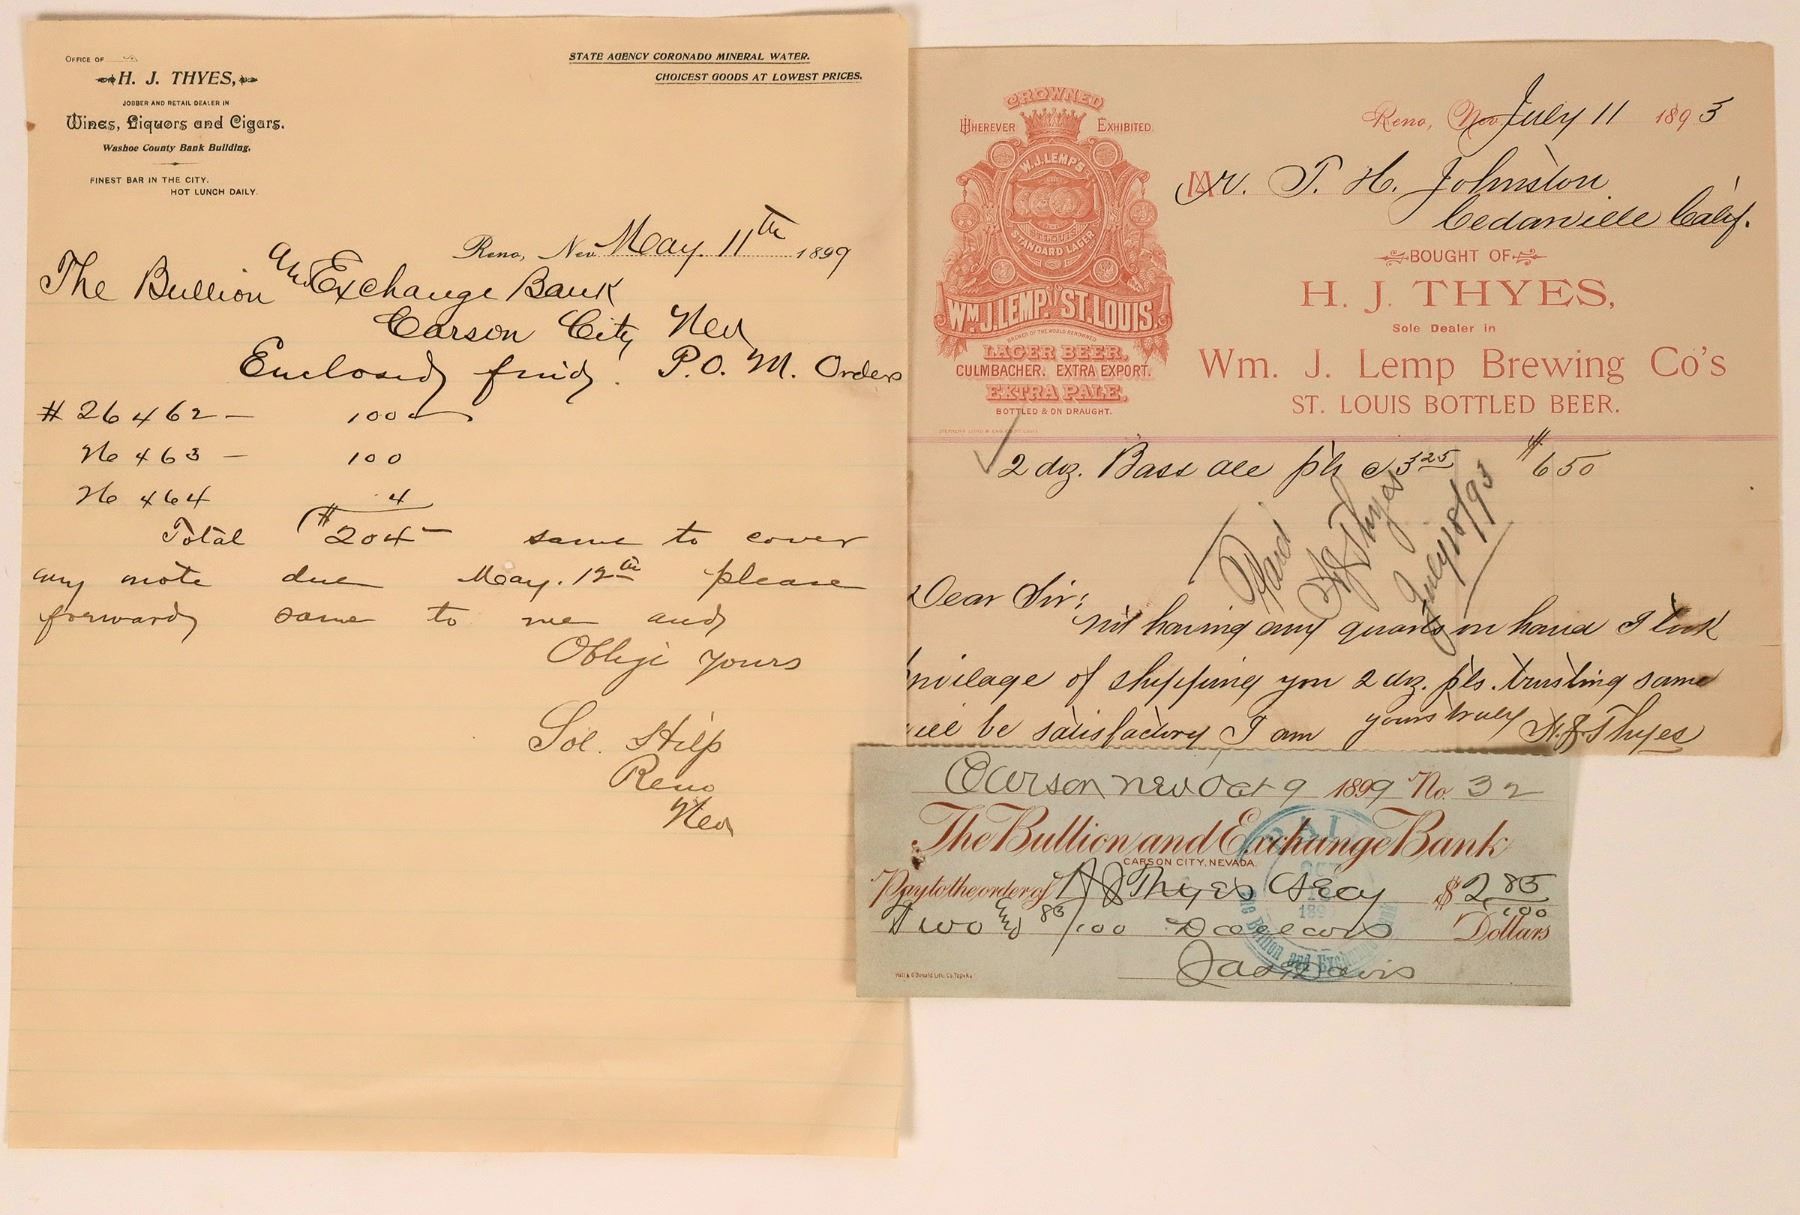 OFFICE OF
H. J. THYES,
JOBBER AND RETAIL DEALER IN
Wines, Liquors and Cigars.
Washoe County Bank Building.
FINEST BAR IN THE CITY.
HOT LUNCH DAILY.
STATE AGENCY CORONADO MINERAL WATER.
CHOICEST GOODS AT LOWEST PRICES.
Reno, Nev May. 11th 1899
The Bullion and Exchange Bank
Carson City Nev
Enclosed find. P.O. M. Orders
# 26462 - 100
No 463 - 100
No 464 4
Total $204 - same to cover
my note due May. 12th please
forward same to me and
Oblige yours
Sol. Hilp
Reno
Nev
CROWNED
WHEREVER EXHIBITED
W. J. LEMP'S
STANDARD LAGER
WM J. LEMP. ST. LOUIS.
BREWER OF THE WORLD RENOWNED
LAGER BEER,
CULMBACHER. EXTRA EXPORT.
EXTRA PALE.
BOTTLED & ON DRAUGHT.
Reno, Nev July 11 1893
Mr. T. H. Johnston
Cedarville Calif.
BOUGHT OF
H. J. THYES,
Sole Dealer in
Wm. J. Lemp Brewing Co's
ST. LOUIS BOTTLED BEER.
2 dz. Bass ale pts @ 3 25 $ 6 50
Paid
H J Thyes
July 18/93
Dear Sir:
not having any quarts on hand I took
privilage of shipping you 2 dz. pts. trusting same
will be satisfactory I am yours truly H. J. Thyes
Carson Nev Oct 9 1899 No. 32
The Bullion and Exchange Bank
CARSON CITY, NEVADA.
Pay to the order of H J Thyes Secy $ 2 85/100
Two and 85/100 Dollars Dollars
Jas Davis
Hall & O'Donald Lith. Co. Topeka
PAID
OCT
189
The Bullion and Exchange Bank